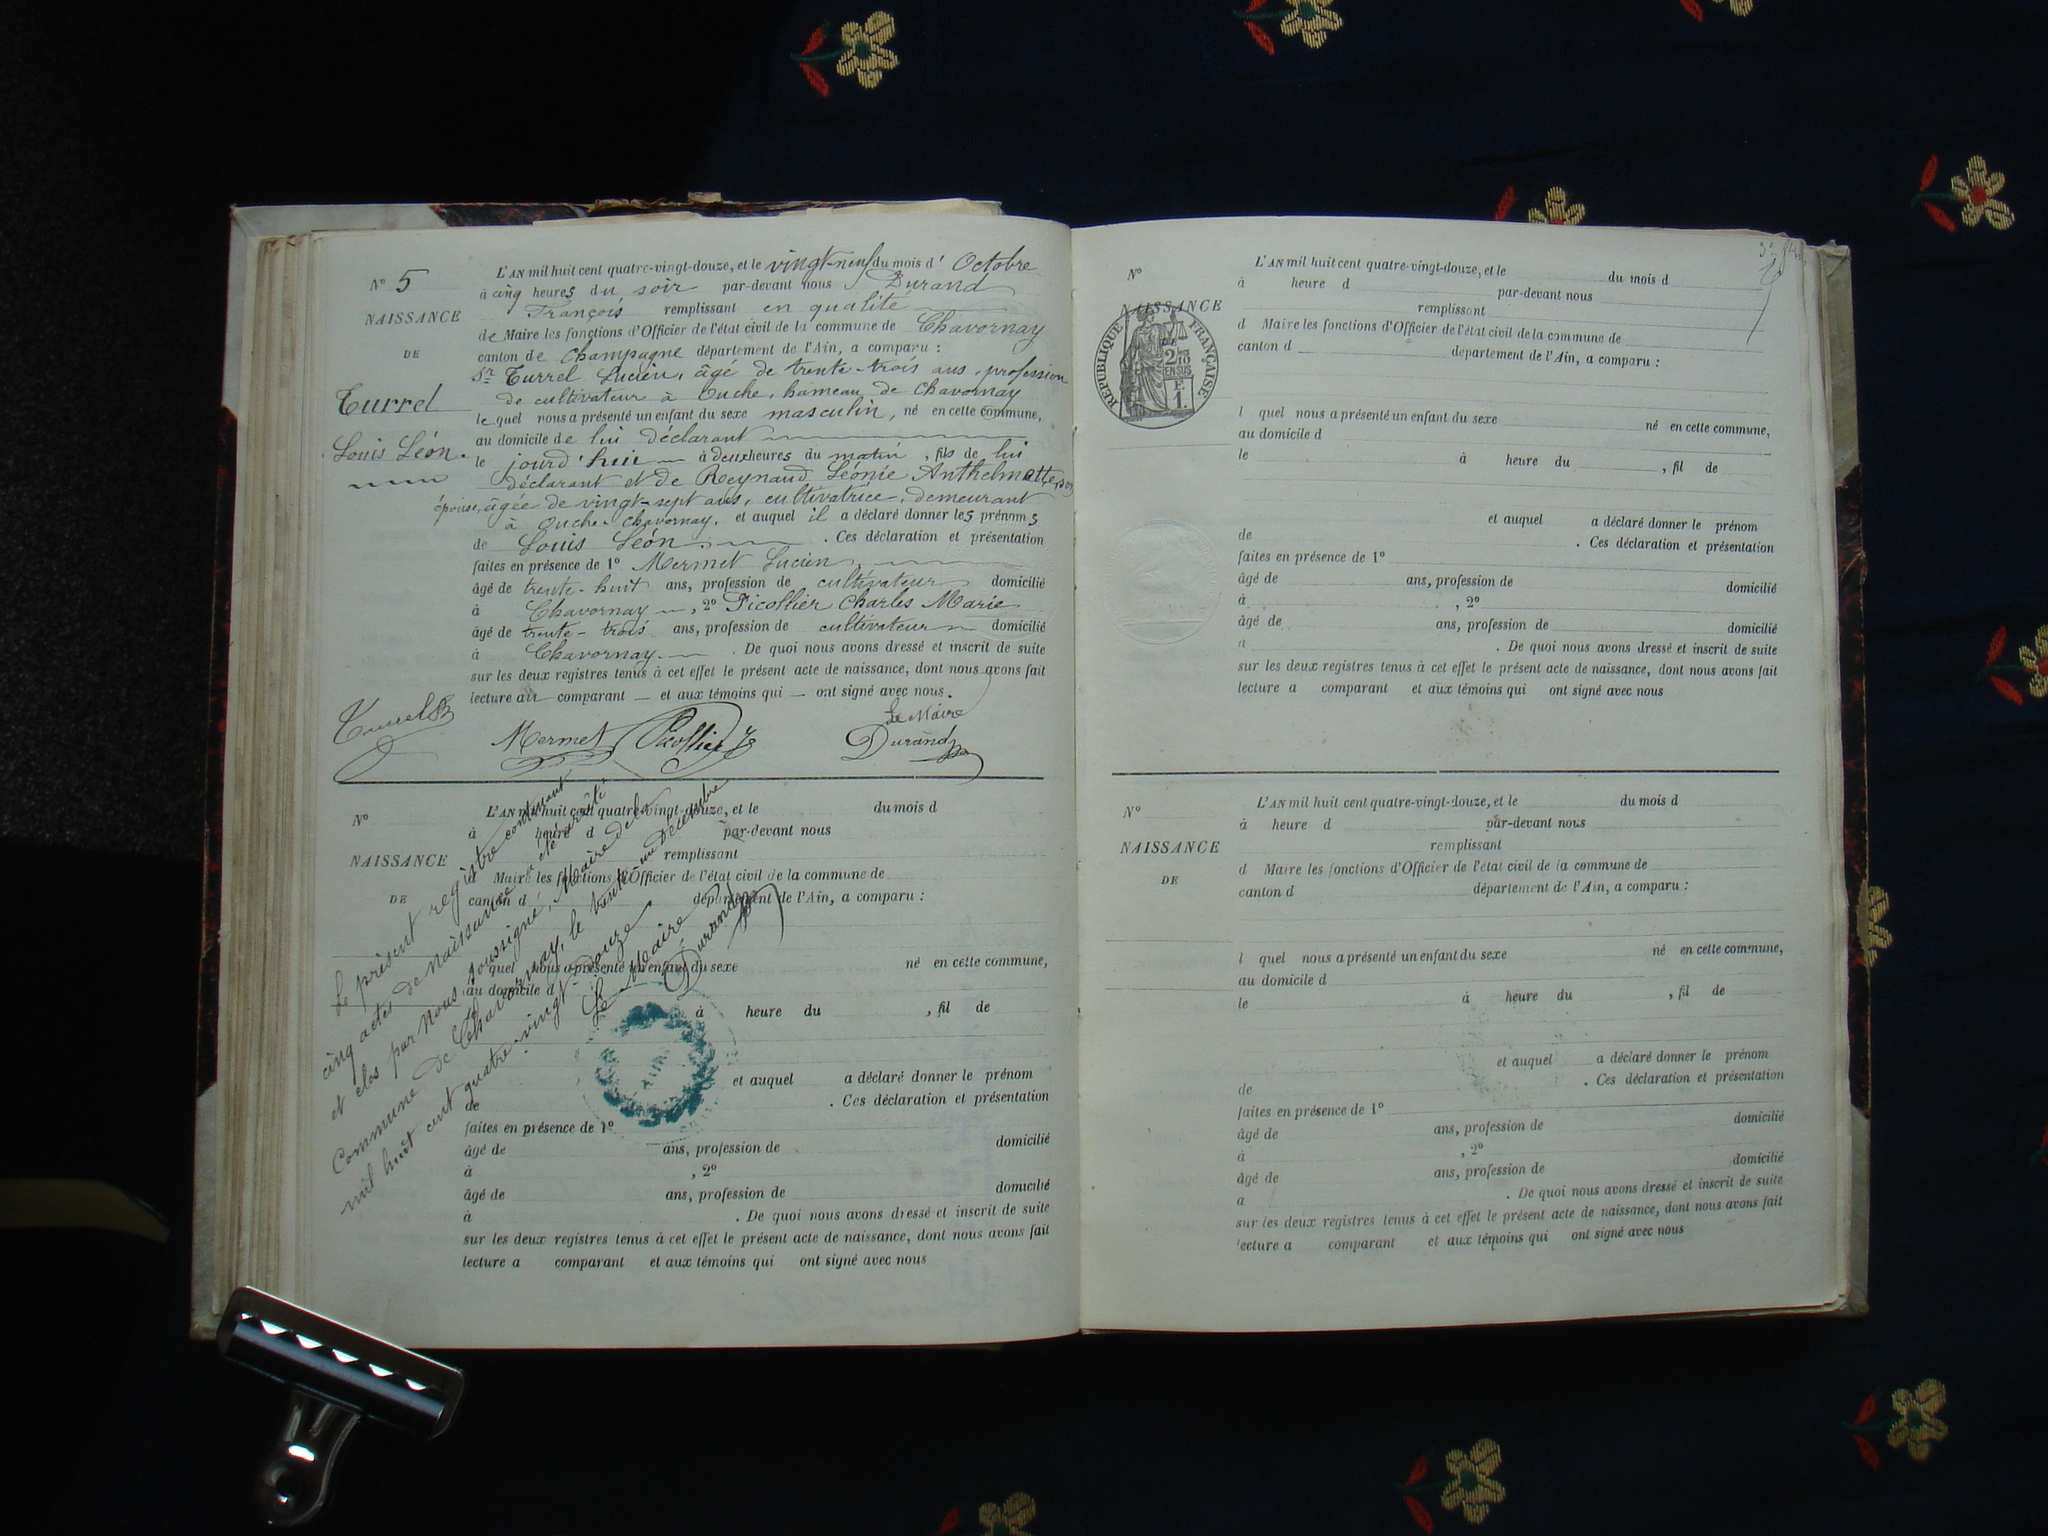 N° 5
NAISSANCE
DE
Turrel
Louis Léon.
L'AN mil huit cent quatre-vingt-douze, et le vingt-neuf du mois d' Octobre
à cinq heures du soir par-devant nous Durand
François remplissant en qualité
de Maire les fonctions d'Officier de l'état civil de la commune de Chavornay
canton de Champagne département de l'Ain, a comparu :
Sr Turrel Lucien, âgé de trente-trois ans, profession
de cultivateur à Ouche, hameau de Chavornay
lequel nous a présenté un enfant du sexe masculin, né en cette commune,
au domicile de lui déclarant
le jourd'hui à deux heures du matin, fils de lui
déclarant et de Reynaud Léonie Anthelmette, son
épouse, âgée de vingt-sept ans, cultivatrice, demeurant
à Ouche-Chavornay, et auquel il a déclaré donner les prénoms
de Louis Léon. Ces déclaration et présentation
faites en présence de 1° Mermet Lucien
âgé de trente-huit ans, profession de cultivateur domicilié
à Chavornay, 2° Picollier Charles Marie
âgé de trente-trois ans, profession de cultivateur domicilié
à Chavornay. De quoi nous avons dressé et inscrit de suite
sur les deux registres tenus à cet effet le présent acte de naissance, dont nous avons fait
lecture au comparant et aux témoins qui ont signé avec nous.
Le Maire
Turrel Mermet Picollier Durand
N°
NAISSANCE
DE
L'AN mil huit cent quatre-vingt-douze, et le du mois d
à heure d par-devant nous
remplissant
d Maire les fonctions d'Officier de l'état civil de la commune de
canton d département de l'Ain, a comparu :
l quel nous a présenté un enfant du sexe né en cette commune,
au domicile d
le à heure du , fil de
et auquel a déclaré donner le prénom
de . Ces déclaration et présentation
faites en présence de 1°
âgé de ans, profession de domicilié
à , 2°
âgé de ans, profession de domicilié
à . De quoi nous avons dressé et inscrit de suite
sur les deux registres tenus à cet effet le présent acte de naissance, dont nous avons fait
lecture a comparant et aux témoins qui ont signé avec nous
Le présent registre contenant
cinq actes de naissance a été arrêté
et clos par Nous soussigné, Maire de la
Commune de Chavornay, le trente un Décembre
mil huit cent quatre-vingt-douze.
Le Maire
Durand
N°
NAISSANCE
RÉPUBLIQUE FRANÇAISE
L'AN mil huit cent quatre-vingt-douze, et le du mois d
à heure d par-devant nous
remplissant
d Maire les fonctions d'Officier de l'état civil de la commune de
canton d département de l'Ain, a comparu :
l quel nous a présenté un enfant du sexe né en cette commune,
au domicile d
le à heure du , fil de
et auquel a déclaré donner le prénom
de . Ces déclaration et présentation
faites en présence de 1°
âgé de ans, profession de domicilié
à , 2°
âgé de ans, profession de domicilié
a . De quoi nous avons dressé et inscrit de suite
sur les deux registres tenus à cet effet le présent acte de naissance, dont nous avons fait
lecture a comparant et aux témoins qui ont signé avec nous
N°
NAISSANCE
DE
L'AN mil huit cent quatre-vingt-douze, et le du mois d
à heure d par-devant nous
remplissant
d Maire les fonctions d'Officier de l'état civil de la commune de
canton d département de l'Ain, a comparu :
l quel nous a présenté un enfant du sexe né en cette commune,
au domicile d
le à heure du , fil de
et auquel a déclaré donner le prénom
de . Ces déclaration et présentation
faites en présence de 1°
âgé de ans, profession de domicilié
à , 2°
âgé de ans, profession de domicilié
a . De quoi nous avons dressé et inscrit de suite
sur les deux registres tenus à cet effet le présent acte de naissance, dont nous avons fait
lecture a comparant et aux témoins qui ont signé avec nous